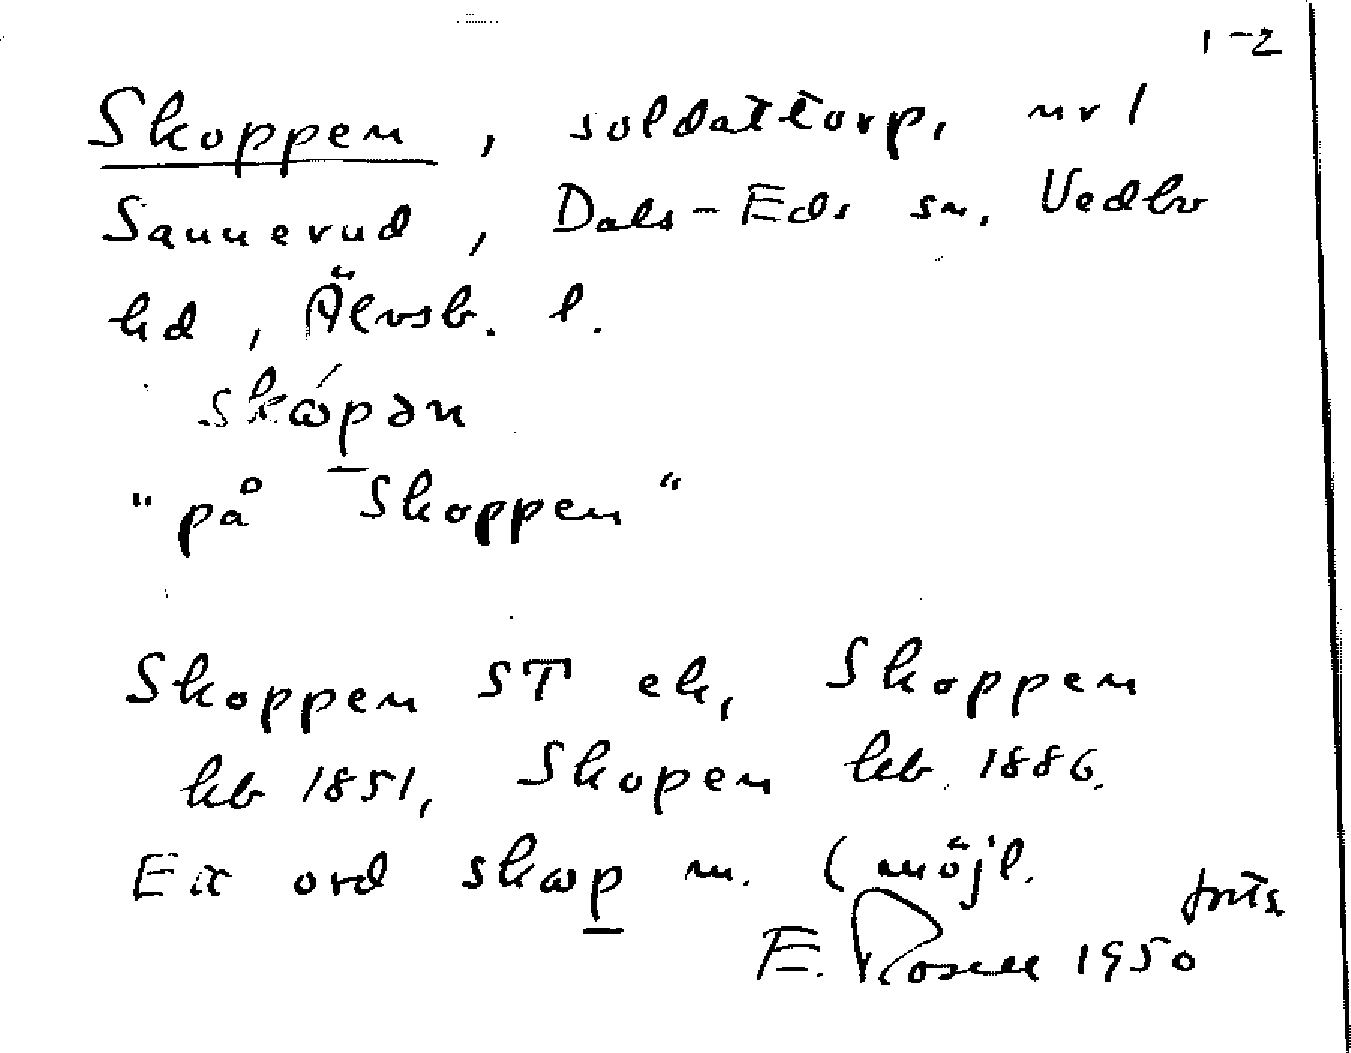 1-2
Skoppen, soldattorp, nr 1
Sannerud, Dals-Eds sn. Vedbo
hd, Älvsb. l.
skɷ́pən
"på Skoppen"
Skoppen ST ek, Skoppen
kb 1851, Skopen kb 1886.
Ett ord skɷp m. (möjl.
forts
E. Rosell 1950